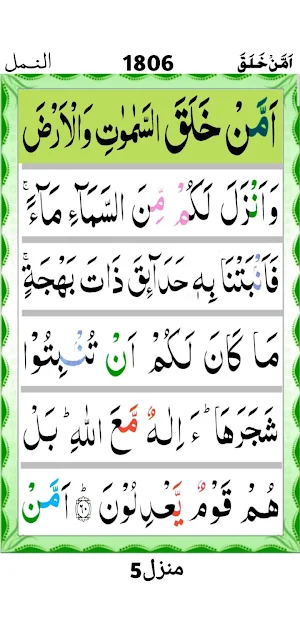 اَمَّنۡ خَلَقَ 1806 النمل
اَمَّنۡ خَلَقَ السَّمٰوٰتِ وَالۡاَرۡضَ
وَاَنۡزَلَ لَكُمۡ مِّنَ السَّمَآءِ مَآءً ۚ
فَاَنۡۢبَتۡنَا بِهٖ حَدَآئِقَ ذَاتَ بَهۡجَةٍ ۚ
مَا كَانَ لَكُمۡ اَنۡ تُنۡۢبِتُوۡا
شَجَرَهَا ؕ ءَاِلٰهٌ مَّعَ اللّٰهِ ؕ بَلۡ
هُمۡ قَوۡمٌ يَّعۡدِلُوۡنَ ۝٦٠ اَمَّنۡ
منزل5